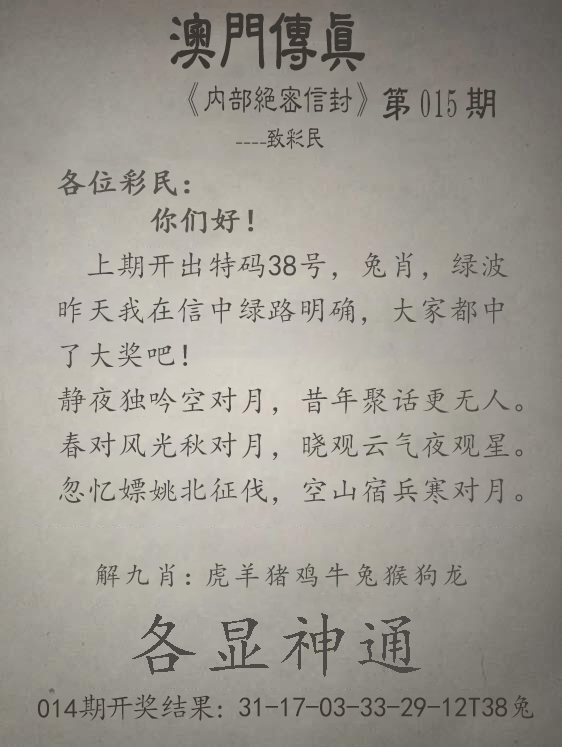 澳門傳眞
《内部絕密信封》第015期
----致彩民
各位彩民：
你们好！
上期开出特码38号，兔肖，绿波
昨天我在信中绿路明确，大家都中
了大奖吧！
静夜独吟空对月，昔年聚话更无人。
春对风光秋对月，晓观云气夜观星。
忽忆嫖姚北征伐，空山宿兵寒对月。
解九肖：虎羊猪鸡牛兔猴狗龙
各显神通
014期开奖结果：31-17-03-33-29-12T38兔